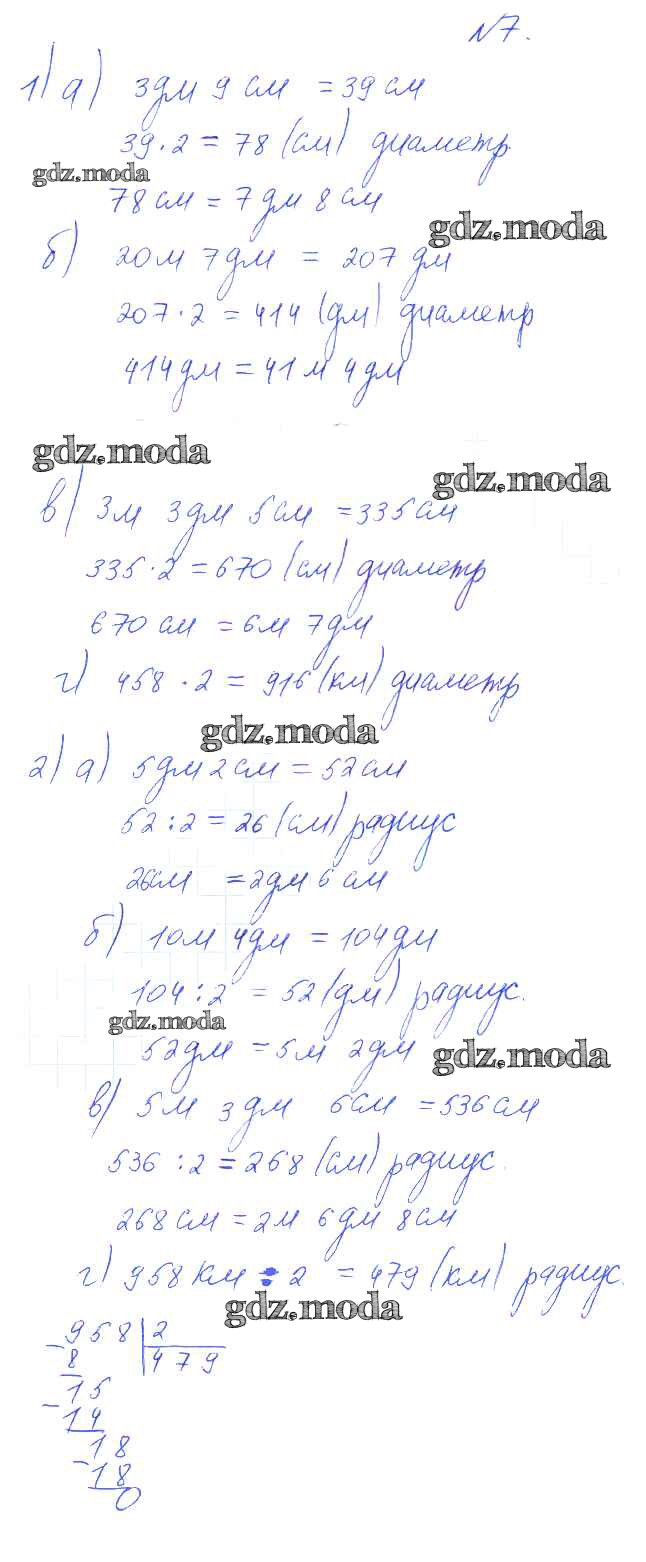 №7.
1) а) 3дм 9 см = 39 см
39·2 = 78 (см) диаметр
gdz.moda
78 см = 7 дм 8 см
gdz.moda
б) 20м 7дм = 207 дм
207·2 = 414 (дм) диаметр
414 дм = 41 м 4 дм
gdz.moda
gdz.moda
в) 3м 3дм 5см = 335 см
335·2 = 670 (см) диаметр
670 см = 6м 7дм
г) 458 · 2 = 916 (км) диаметр
gdz.moda
2) а) 5дм 2см = 52 см
52 : 2 = 26 (см) радиус
26см = 2дм 6 см
б) 10м 4дм = 104 дм
104 : 2 = 52 (дм) радиус.
gdz.moda
52дм = 5м 2дм
gdz.moda
в) 5м 3дм 6см = 536 см
536 : 2 = 268 (см) радиус.
268 см = 2м 6дм 8см
г) 958 км : 2 = 479 (км) радиус.
gdz.moda
958 2
8 479
15
14
18
18
0